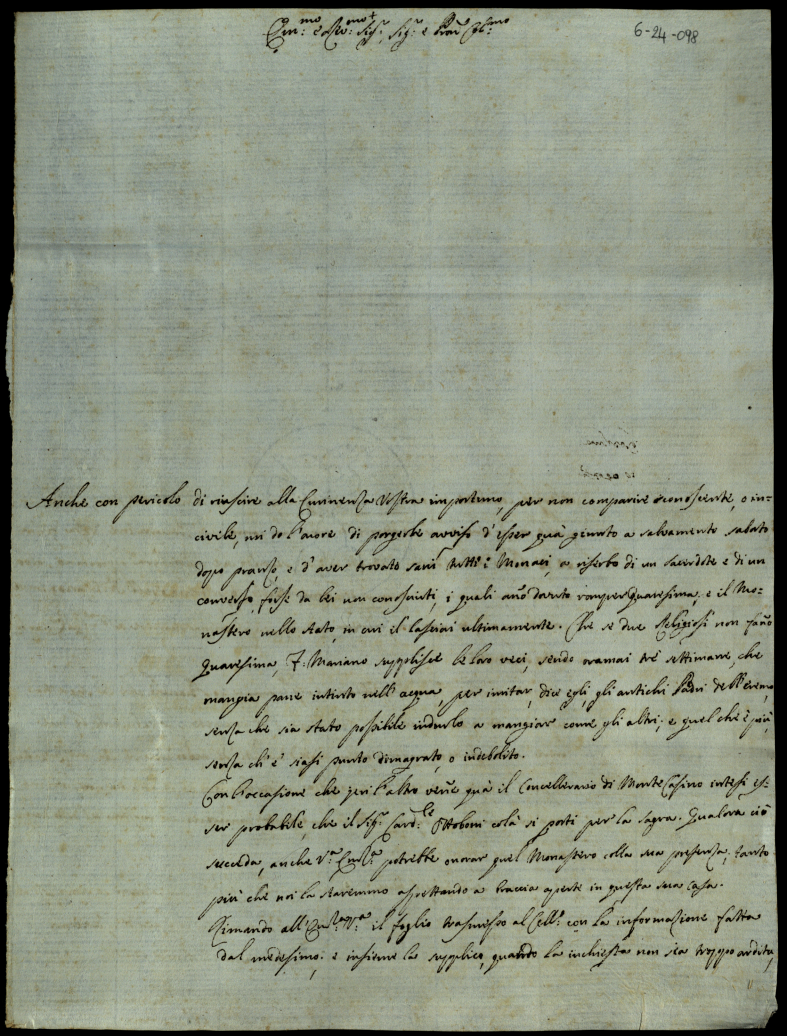 Em.mo e Rev.mo Sig.r, Sig.r e Pad. Col.mo
6-24-098
Anche con pericolo di riuscire alla Eminenza Vostra importuno, per non comparire sconoscente, o in=
civile, mi do l'onore di porgerle avviso d'esser quà giunto a salvamento sabato
dopo pranso, e d'aver trovato sani tutti i Monaci, a riserbo di un sacerdote e di un
converso, forse da lei non conosciuti, i quali anño dovuto romper Quaresima, e il Mo=
nastero nello stato, in cui il lasciai ultimamente. Che se due Religiosi non fanno
Quaresima, F. Mariano supplisce le loro veci, sendo oramai trè settimane, che
mangia pane intinto nell'acqua, per imitar, dice egli, gli antichi Padri dell'eremo,
senza che sia stato possibile indurlo a mangiar come gli altri; e quel che è più,
senza ch'e' siasi punto dimagrato, o indebolito.
Con l'occasione che jeri l'altro venne quà il Concellerario di Monte Casino intesi es=
ser probabile, che il Sig.r Card.le Ottoboni colà si porti per la sagra. Qualora ciò
succeda, anche V.a Em.za potrebbe onorar quel Monastero colla sua presenza, tanto
più che noi la staremmo aspettando a braccia aperte in questa sua casa.
Rimando all' il foglio trasmesso al Cell.o con la informazione fatta
dal medesimo; e insieme la supplico, quando la inchiesta non sia troppo ardita,